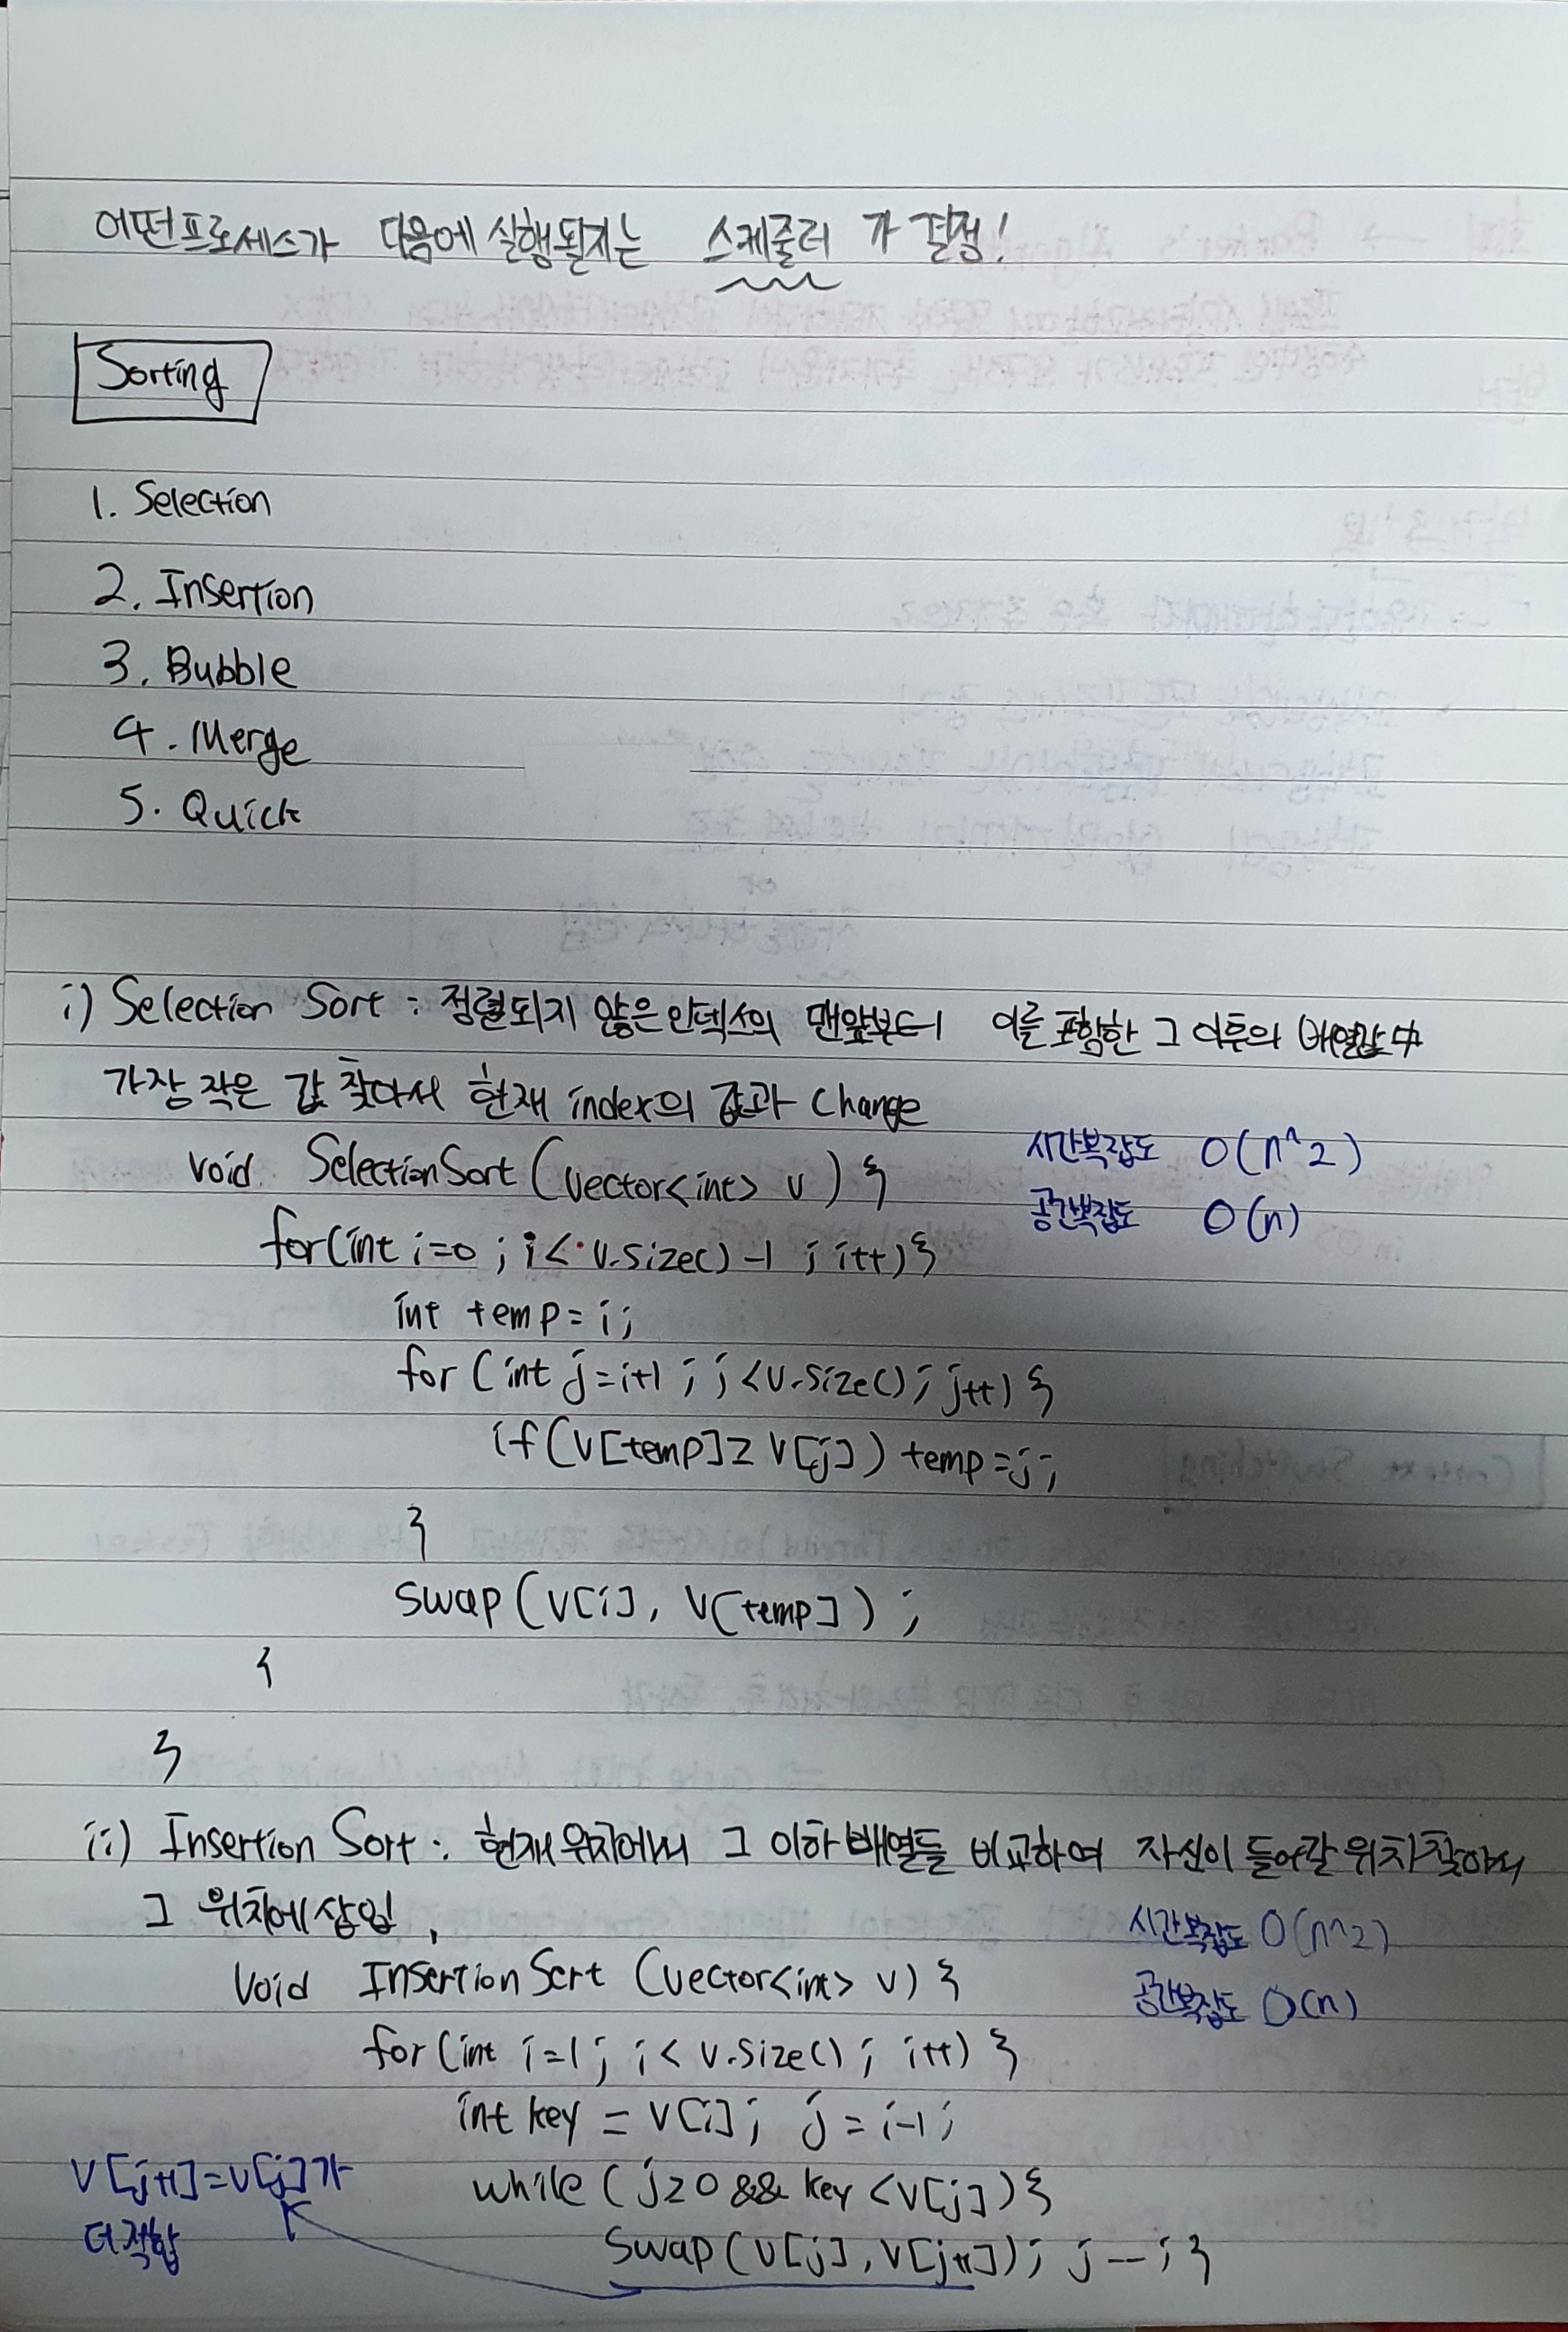 어떤프로세스가 다음에 실행될지는 스케줄러 가 결정!
Sorting
1. Selection
2. Insertion
3. Bubble
4. Merge
5. Quick
i) Selection Sort : 정렬되지 않은 인덱스의 맨앞부터 이를 포함한 그 이후의 배열값 中
가장 작은 값 찾아서 현재 index의 값과 change
시간복잡도 O(n^2)
void SelectionSort (vector<int> v) {
공간복잡도 O(n)
for(int i=0 ; i< v.size() -1 ; i++) {
int temp = i;
for (int j=i+1 ; j <v.size() ; j++) {
if (v[temp] ≥ v[j]) temp = j;
}
swap (v[i], v[temp]) ;
}
}
ii) Insertion Sort : 현재 위치에서 그 이하 배열들 비교하여 자신이 들어갈 위치 찾아서
그 위치에 삽입,
시간복잡도 O(n^2)
void Insertion Sort (vector<int> v) {
공간복잡도 O(n)
for (int i=1 ; i < v.size() ; i++) {
int key = v[i] ; j = i-1 ;
v[j+1] = v[j]가
더 적합
while (j≥0 && key <v[j]) {
swap (v[j], v[j+1]) ; j-- ; }